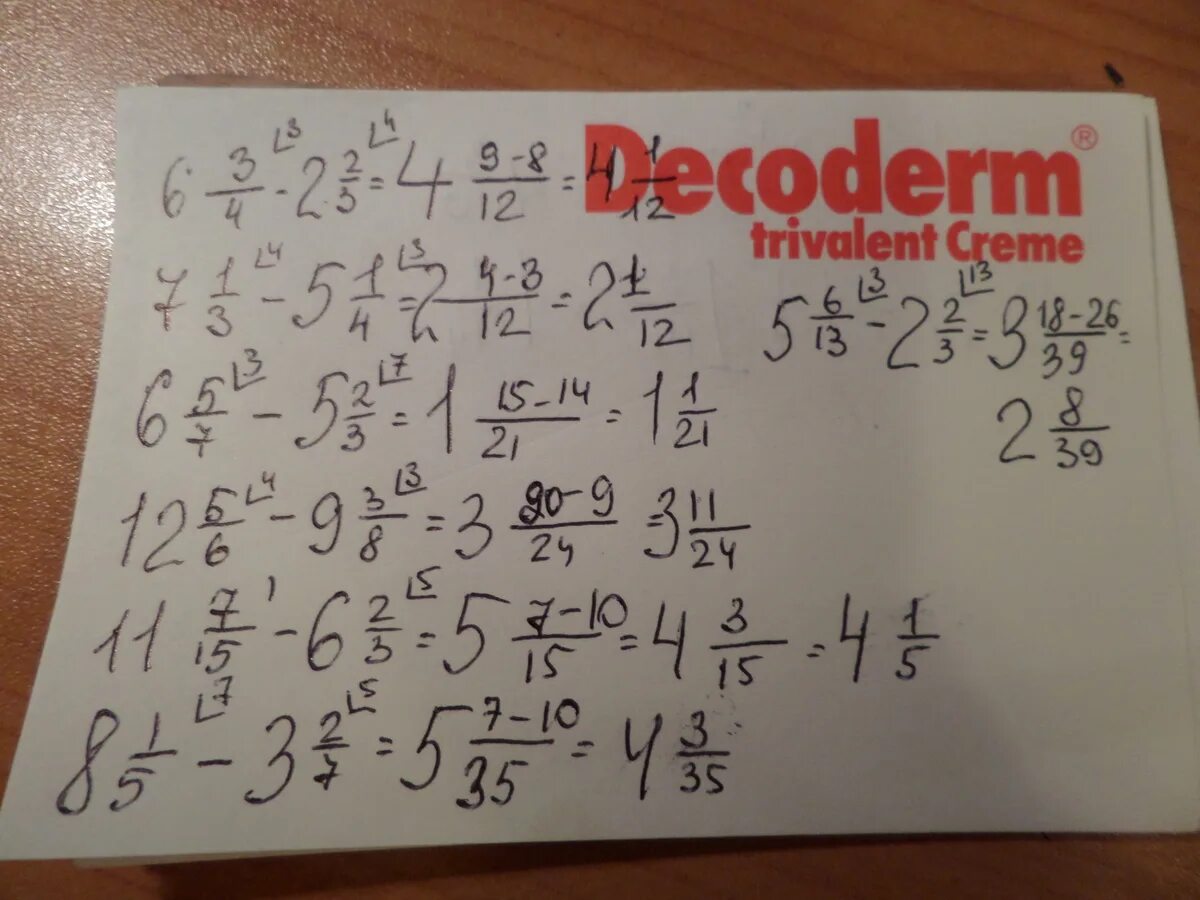 Decoderm®
trivalent Creme
6 3/4 ⌊3 - 2 2/3 ⌊4 = 4 9-8/12 = 4 1/12
7 1/3 ⌊4 - 5 1/4 ⌊3 = 2 4-3/12 = 2 1/12
6 5/7 ⌊3 - 5 2/3 ⌊7 = 1 15-14/21 = 1 1/21
12 5/6 ⌊4 - 9 3/8 ⌊3 = 3 20-9/24 = 3 11/24
11 7/15 ⌊1 - 6 2/3 ⌊5 = 5 7-10/15 = 4 3/15 = 4 1/5
8 1/5 ⌊7 - 3 2/7 ⌊5 = 5 7-10/35 = 4 3/35
5 6/13 ⌊3 - 2 2/3 ⌊13 = 3 18-26/39 =
2 8/39